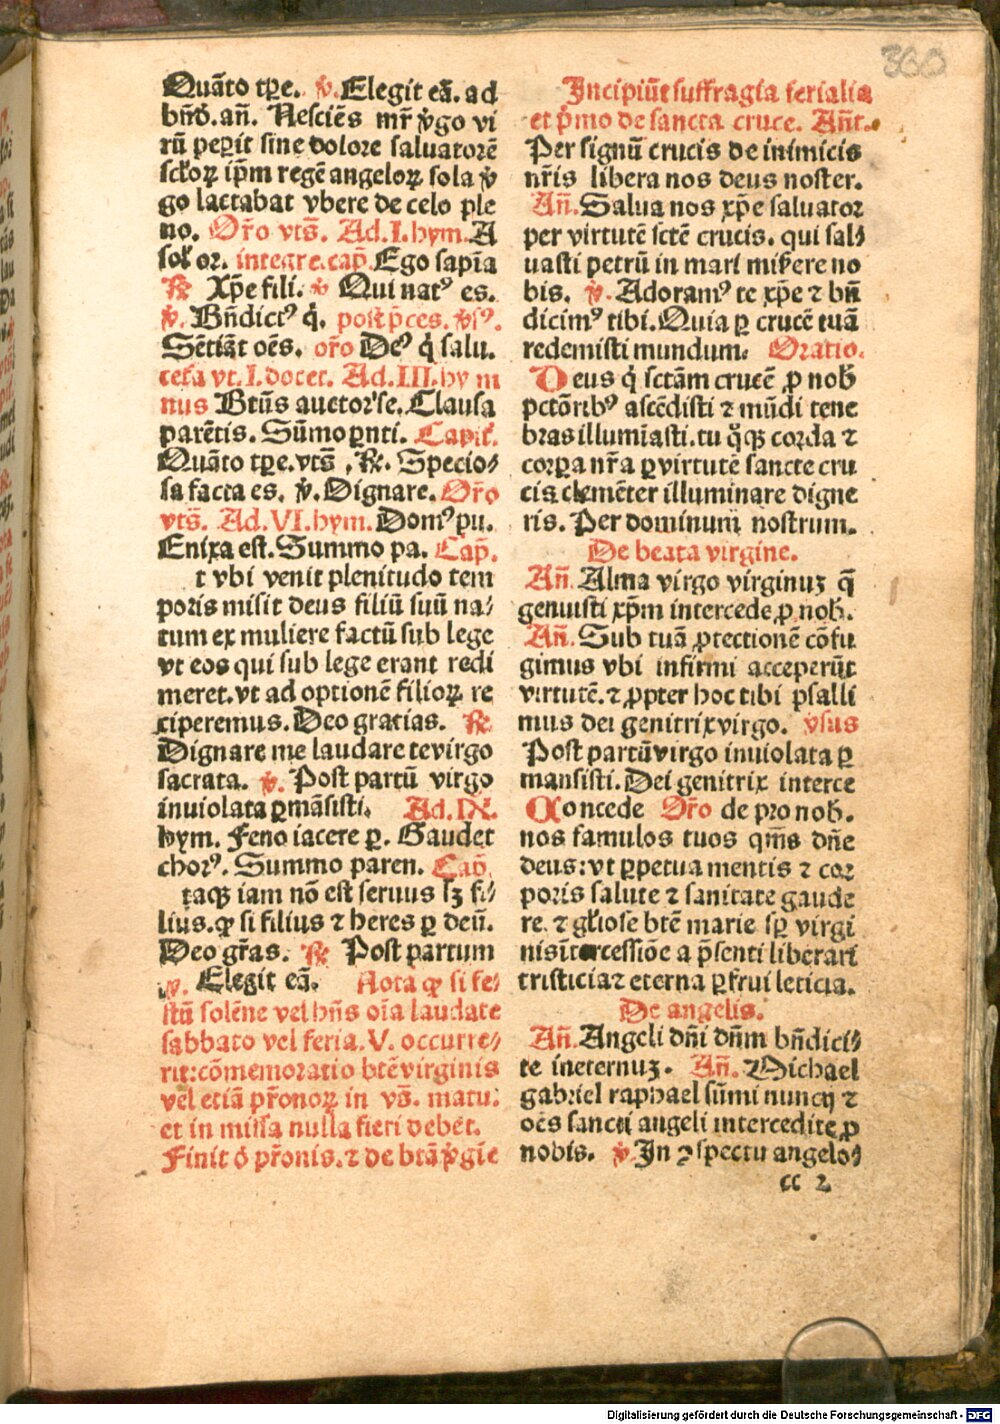 300
Quãto tꝑe. ℣. Elegit eã. ad
bñd̄. añ. Nesciẽs mr̄ v̄go vi
rũ peꝑit sine dolore saluatorẽ
sclorꝝ ip̄m regẽ angelorꝝ sola v̄
go lactabat vbere de celo ple
no. Or̃o vts̃. Ad.I.hym. A
sol' or. integre. cap̃. Ego sapĩa
℟ Xp̃e fili. ℣ Qui natꝰ es.
℣. Bñdictꝰ q̇. post p̃ces. ℣sꝰ.
Sẽtiãt oẽs. or̃o Deꝰ q̇ salu.
cet'a vt. I. docet. Ad.III.hym
nus Btũs auctor'se. Clausa
parẽtis. Sũmo ꝑnti. Capit'.
Quãto tꝑe. vts̃. ℟. Specio⸗
sa facta es. ℣. Dignare. Or̃o
vts̃. Ad.VI.hym. Domꝰ pu.
Enixa est. Summo pa. Cap̃.
t vbi venit plenitudo tem
poris misit deus filiũ suũ na⸗
tum ex muliere factũ sub lege
vt eos qui sub lege erant redi
meret. vt ad optionẽ filiorꝝ re
ciperemus. Deo gratias. ℟
Dignare me laudare te virgo
sacrata. ℣. Post partũ virgo
inuiolata ꝑmãsisti. Ad.IX.
hym. Feno iacere ꝑ. Gaudet
chorꝰ. Summo paren. Cap̃
taqꝫ iam nõ est seruus sꝫ fi⸗
lius. ꝙ si filius ⁊ heres ꝑ deũ.
Deo gr̃as. ℟ Post partum
℣. Elegit eã. Nota ꝙ si fe⸗
stũ solẽne vel hñs oĩa laudate
sabbato vel feria. V. occurre⸗
rit: cõmemoratio btẽ virginis
vel etiã pr̃onorꝝ in vs̃. matu:
et in missa nulla fieri debet.
Finit d̄ pr̃onis. ⁊ de btã v̄gĩe
Incipiũt suffragia ferialia
et p̃mo de sancta cruce. Añt.
Per signũ crucis de inimicis
nr̃is libera nos deus noster.
Añ. Salua nos xp̃e saluator
per virtutẽ sctẽ crucis. qui sal⸗
uasti petrũ in mari miserere no
bis. ℣. Adoramꝰ te xp̃e ⁊ bñ
dicimꝰ tibi. Quia ꝑ crucẽ tuã
redemisti mundum. Oratio.
Deus q̇ sctãm crucẽ ꝓ nob̃
pctõribꝰ ascẽdisti ⁊ mũdi tene
bras illumĩasti. tu q̃sqꝫ corda ⁊
corꝑa nr̃a ꝑ virtutẽ sancte cru
cis clemẽter illuminare digne
ris. Per dominum nostrum.
De beata virgine.
Añ. Alma virgo virginuꝫ q̃
genuisti xp̃m intercede ꝓ nob̃.
Añ. Sub tuã ꝓtectionẽ cõfu
gimus vbi infirmi acceperũt
virtutẽ. ⁊ ꝓpter hoc tibi psalli
mus dei genitrix virgo. ℣sus
Post partũ virgo inuiolata ꝑ
mansisti. Dei genitrix interce
Concede Or̃o de pro nob̃.
nos famulos tuos qm̃s dñe
deus: vt ꝑpetua mentis ⁊ cor
poris salute ⁊ sanitate gaude
re. ⁊ gl'iose btẽ marie sꝑ virgi
nis ĩtercessiõe a p̃senti liberari
tristicia ⁊ eterna ꝑfrui leticia.
De angelis.
Añ. Angeli dñi dñm bñdici⸗
te ineternuꝫ. Añ. Michael
gabriel raphael sũmi nuncij ⁊
oẽs sancti angeli intercedite ꝓ
nobis. ℣. In ꝯspectu angelo⸗
cc 2
Digitalisierung gefördert durch die Deutsche Forschungsgemeinschaft - DFG